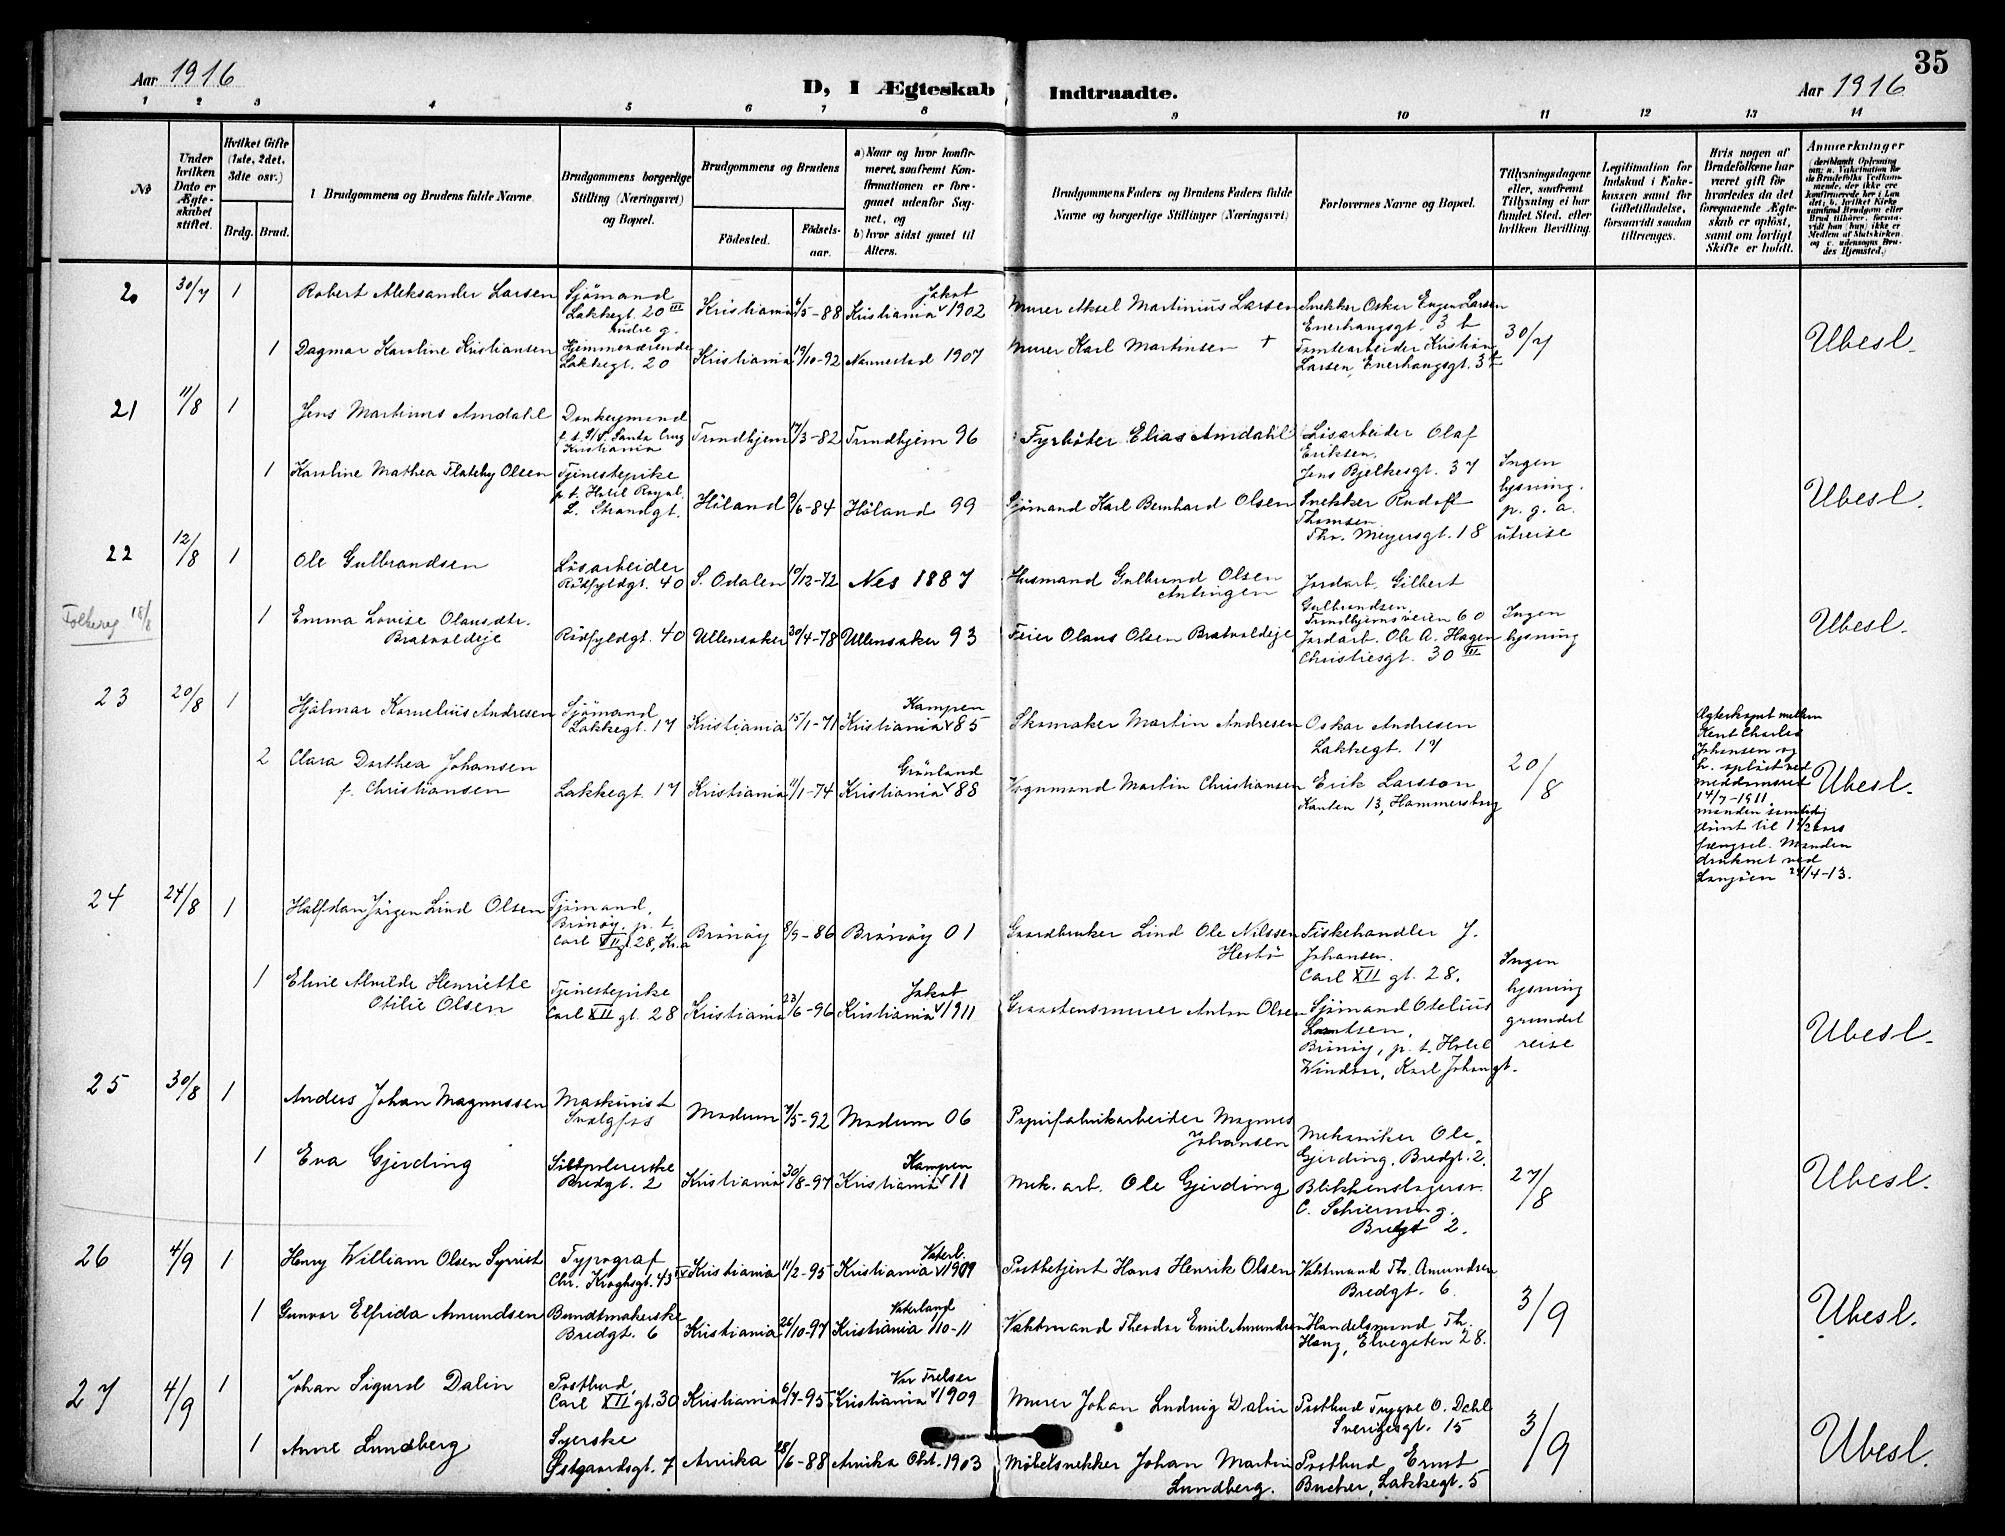 35
Aar 1916
D, I Ægteskab Indtraadte.
Aar 1916
1 2 3 4 5 6 7 8 9 10 11 12 13 14
No
Under hvilken Dato er Ægteskabet stiftet.
Hvilket Gifte (1ste, 2det, 3die osv.)
Brdg. Brud.
1 Brudgommens og Brudens fulde Navne.
Brudgommens borgerlige Stilling (Næringsvei) og Bopæl.
Brudgommens og Brudens
Fødested.
Fødselsaar.
a) Naar og hvor konfirmeret, saafremt Konfirmationen er foregaaet udenfor Sognet, og
b) hvor sidst gaaet til Alters.
Brudgommens Faders og Brudens Faders fulde Navne og borgerlige Stillinger (Næringsvei)
Forlovernes Navne og Bopæl.
Tillysningsdagene eller, saafremt Tillysning ei har fundet Sted, efter hvilken Bevilling.
Legitimation for Indskud i Enkekassen samt for Giftetilladelse, forsaavidt saadan tiltrænges.
Hvis nogen af Brudefolkene har været gift før hvorledes da det foregaaende Ægteskab er opløst, samt om lovligt Skifte er holdt.
Anmerkninger
20 30/7 1 Robert Aleksander Larsen Sjømand Lakkegt. 20 III Kristiania 6/5-88 Jakob Kristiania 1902 Murer Aksel Martinius Larsen Snekker Oskar Eugen Larsen Enerhaugsgt. 3 b
1 Dagmar Karoline Kristiansen Hjemmeværende Lakkegt. 20 Kristiania 19/10-92 Nannestad 1907 Murer Karl Martinsen + Tomtearbeider Kristian Larsen, Enerhaugsgt. 3 b 30/7 Ubesl.
21 11/8 1 Jens Martinus Amdahl Donkeymand p. t. S/S. Santa Cruz Kristiania Trondhjem 17/3-82 Trondhjem 96 Fyrbøter Elias Amdahl Løsarbeider Olaf Eriksen, Jens Bjelkesgt. 37
1 Karoline Mathea Flateby Olsen Tjenestepike p. t. Hotel Royal, L. Strandgt. Høland 9/6-84 Høland 99 Sjømand Karl Bernhard Olsen Snekker Rudolf Thomsen Thv. Meyersgt. 18 Ingen lysning p. g. a. utreise Ubesl.
22 12/8 1 Ole Gulbrandsen Løsarbeider Rødfyldgt. 40 S. Odalen 10/12-72 Nes 1887 Husmand Gulbrand Olsen Jordarb. Gilbert Gulbrandsen, Trondhjemsveien 60
18/8
1 Emma Lovise Olausdtr. Bratvoldeje Rødfyldgt. 40 Ullensaker 30/4-78 Ullensaker 93 Feier Olaus Olsen Bratvoldeje Jordarb. Ole A. Hagen Christiesgt. 30 III Ingen lysning Ubesl.
23 20/8 1 Hjalmar Kornelius Andresen Sjømand Lakkegt. 17 Kristiania 15/1-71 Kampen Kristiania 85 Skomaker Martin Andresen Oskar Andresen Lakkegt. 17
2 Clara Dorthea Johansen f. Christiansen Lakkegt. 17 Kristiania 11/1-74 Grønland Kristiania 88 Vognmand Martin Christiansen Erik Larsson Kanten 13, Hammersborg 20/8
Ægteskapet mellem Kent Charles Johansen og h. opløst ved meddomsret 14/7-1911, manden samtidig dømt til 1 1/2 aars fængsel. Manden druknet ved Langøen 24/4-13.
Ubesl.
24 24/8 1 Halfdan Jørgen Lind Olsen Sjømand, Brönöy, p. t. Carl XII gt. 28, Kr.a Brönöy 8/9-86 Brönöy 01 Gaardbruker Lind Ole Nilssen Hestø Fiskehandler J. Johansen. Carl XII gt. 28.
1 Eline Alvilde Henriette Otilie Olsen Tjenestepike Carl XII gt. 28 Kristiania 23/6-96 Jakob Kristiania 1911 Graastensmurer Anton Olsen Sjømand Otelius Brönöy, p. t. Hotel Windsor, Karl Johangt. Ingen lysning grundet reise Ubesl.
25 30/8 1 Anders Johan Magnussen Maskinist Svælgfos Modum 7/5-92 Modum 06 Papirfabrikarbeider Magnus Johansen Mekaniker Ole Gjerding, Bredgt. 2.
1 Eva Gjerding Bredgt. 2 Kristiania 30/8-97 Kampen Kristiania 11 Mek. arb. Ole Gjerding Blikkenslagersv. C. Schierning, Bredgt 2. 27/8 Ubesl.
26 4/9 1 Henry William Olsen Syvrist Typograf Chr. Kroghsgt. 43 IV Kristiania 11/2-95 Vaterl. Kristiania 1909 Postbetjent Hans Henrik Olsen Vaktmand Th. Amundsen Bredgt. 6.
1 Gunvor Elfrida Amundsen Bundtmakerske Bredgt. 6 Kristiania 26/10-97 Vaterland Kristiania 110-11 Vaktmand Theodor Emil Amundsen Handelsmand Th. Haug, Elvegaten 28. 3/9 Ubesl.
27 4/9 1 Johan Sigurd Dalin Postbud, Carl XII gt. 30 Kristiania 6/7-95 Vor Frelser Kristiania 1909 Murer Johan Ludvig Dalin Postbud Trygve O. Dahl Sverigesgt. 15
1 Anne Lundberg Syerske Østgaardsgt. 7 Arvika 28/6-88 Arvika Okt. 1903 Møbelsnekker Johan Martin Lundberg. Postbud Ernst Bucher, Lakkegt. 5 3/9 Ubesl.